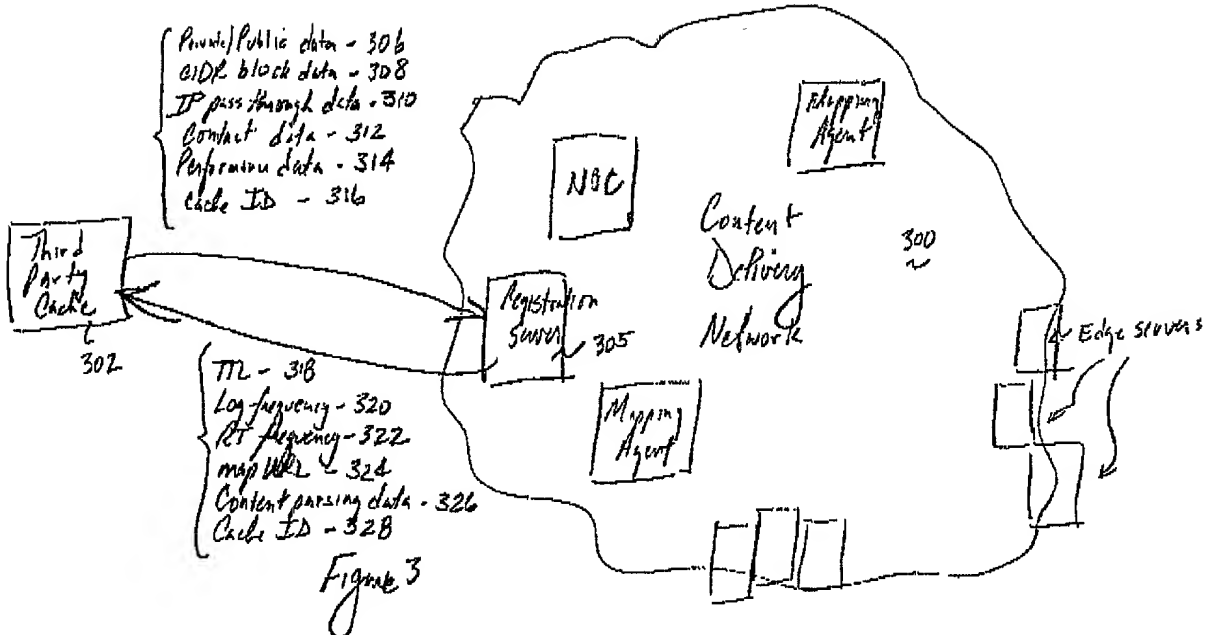 Private/Public data - 306
CIDR block data - 308
IP pass through data - 310
Contact data - 312
Performance data - 314
Cache ID - 316
Third
Party
Cache
302
Registration
Server
305
NOC
Mapping
Agent
Content
Delivery
Network
300
Edge servers
Mapping
Agent
TTL - 318
Log frequency - 320
RT frequency - 322
map URL - 324
Content parsing data - 326
Cache ID - 328
Figure 3